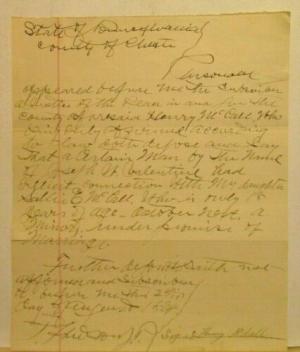 State of Pennsylvania
County of Chester
Personally
appeared before me the Subscriber
a Justice of the Peace in and for the
County aforesaid Henry McCall who
being duly affirmed according
to law doth depose and Say
That a certain Man by the Name
of Joseph H. Valentine had
connection with my daughter
Sallie E McCall who is only
years of age October next, a
Minor, under promise of
Marriage
Further deponent saith not
affirmed and Subscribed
to before me this 29th
day of August
Signed Henry McCall